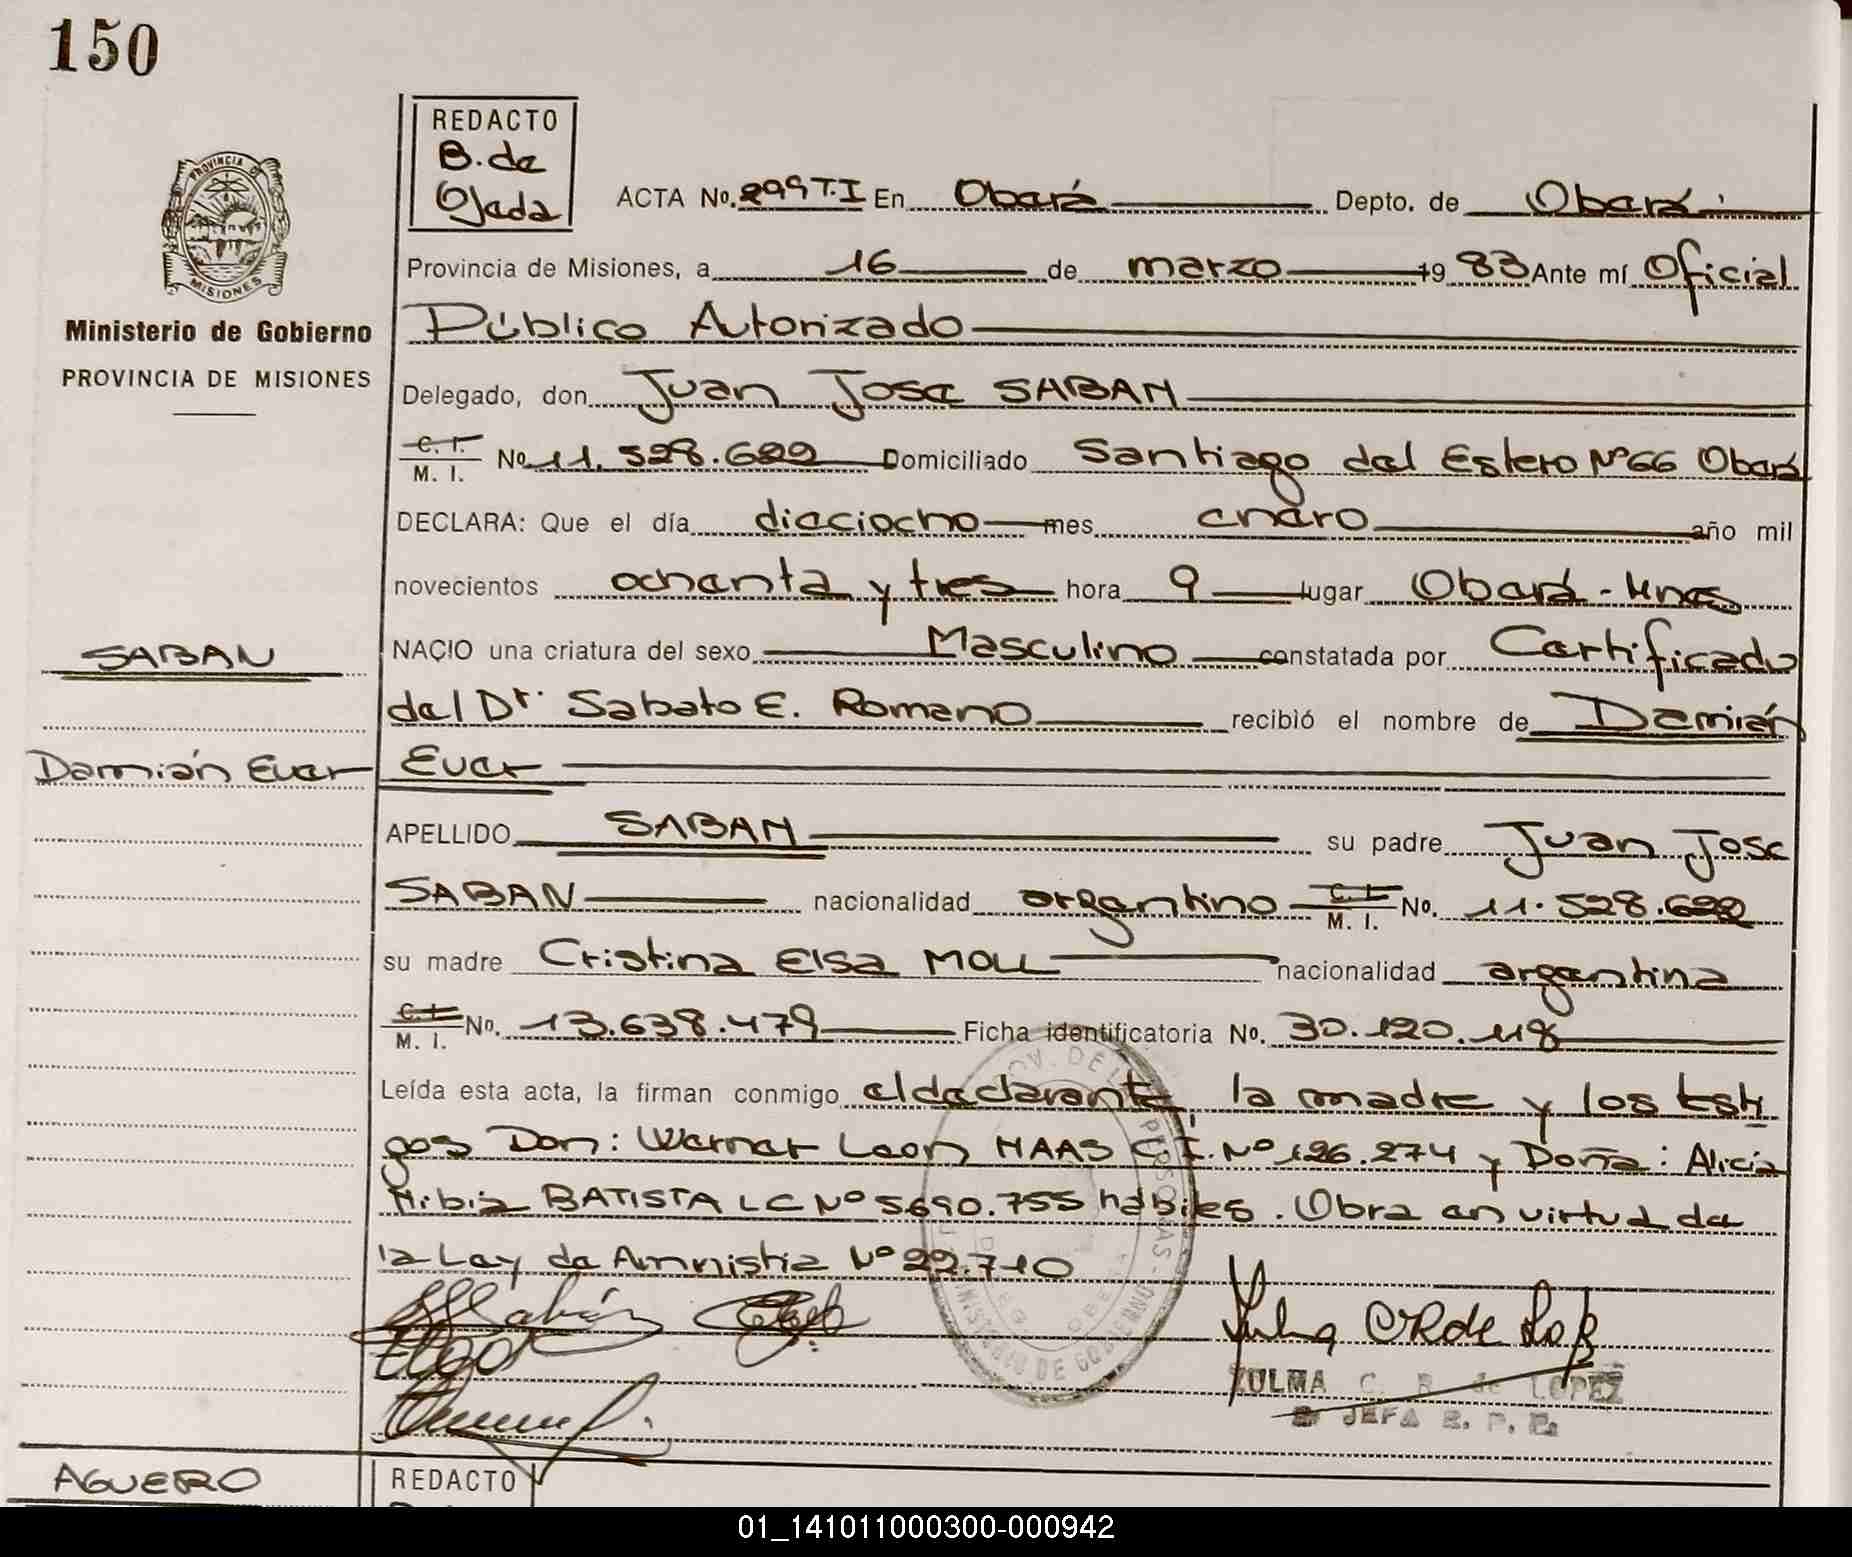 150
REDACTO
B. de
Ojeda
ACTA No. 299 T.I En Oberá Depto. de Oberá
PROVINCIA DE
MISIONES
Ministerio de Gobierno
PROVINCIA DE MISIONES
Provincia de Misiones, a 16 de marzo 1983 Ante mí Oficial
Público Autorizado
Delegado, don Juan Jose SABAN
C. I.
M. I. No 11.528.622 Domiciliado Santiago del Estero Nº 66 Oberá
DECLARA: Que el día dieciocho mes enero año mil
novecientos ochenta y tres hora 9 lugar Oberá - Mnes
SABAN
NACIO una criatura del sexo Masculino constatada por Certificado
del Dr. Sabato E. Romano recibió el nombre de Damián
Damián Ever
Ever
APELLIDO SABAN su padre Juan Jose
SABAN nacionalidad argentino C. I.
M. I. No. 11.528.622
su madre Cristina Elsa MOLL nacionalidad argentina
C. I.
M. I. No. 13.638.479 Ficha identificatoria No. 30.120.118
Leída esta acta, la firman conmigo el declarante, la madre y los testi
gos Don: Werner Leon HAAS C.I. Nº 126.274 y Doña: Alicia
Nibia BATISTA LC Nº 5.690.755 hábiles. Obra en virtud de
la Ley de Amnistia Nº 22.710
ZULMA C. R. de LOPEZ
JEFA R. P. P.
MINISTERIO DE GOBIERNO
AGUERO
REDACTO
01_141011000300-000942